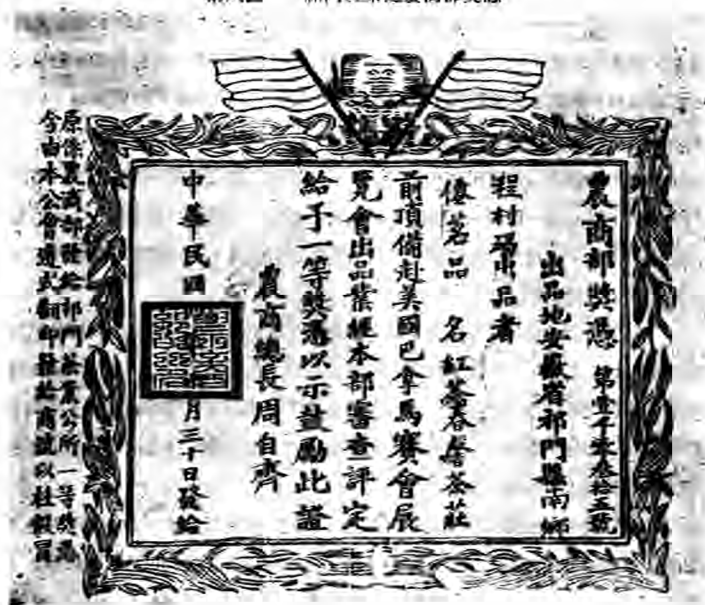 農商部獎憑 第壹千叁拾五號
出品地安徽省祁門縣南鄉
程村碣出品者
茗品 名紅茶春馨茶莊
前項備赴美國巴拿馬賽會展
覽會出品業經本部審查評定
給予一等獎憑以示鼓勵此證
農商總長周自齊
中華民國 月三十日發給
原係農商部發給祁門茶業公所一等獎憑
今由本公會遵式翻印發給商號以杜假冒